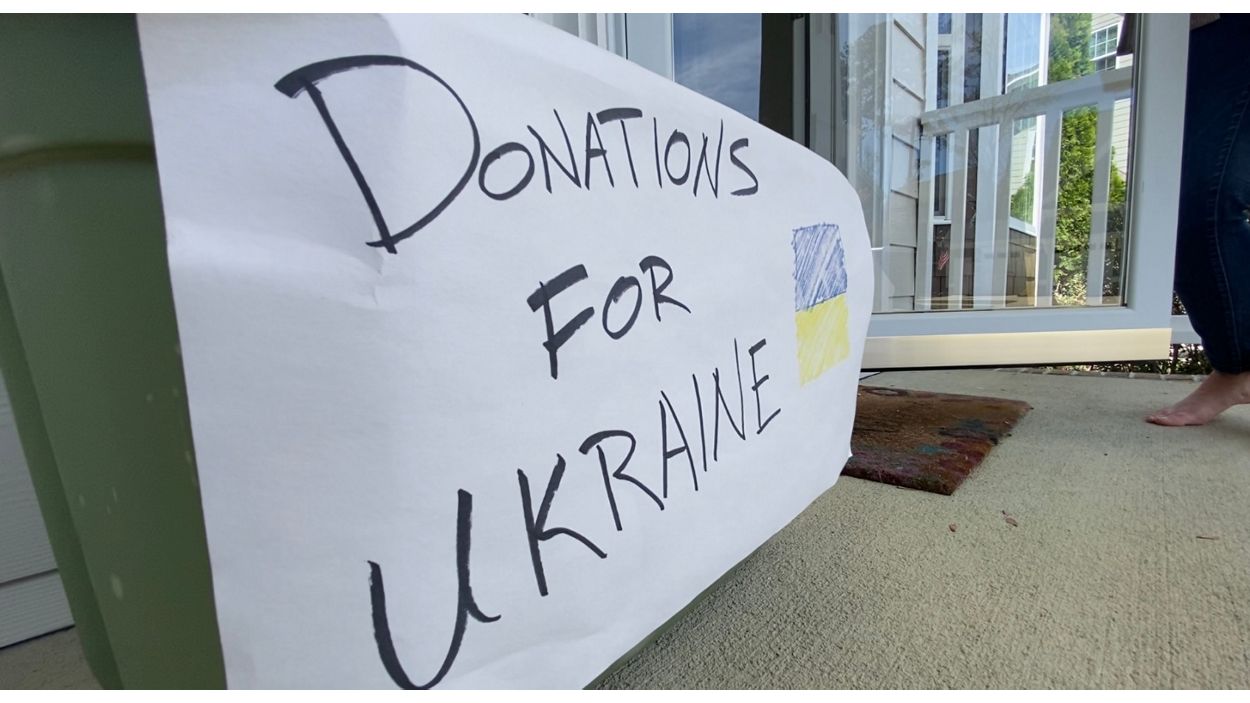 DONATIONS
FOR
UKRAINE